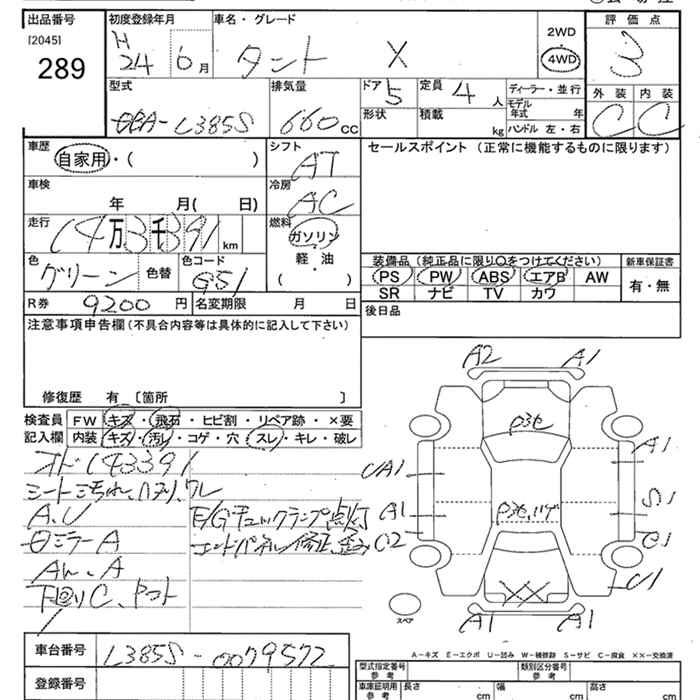 出品番号 初度登録年月 車名・グレード 評価点
[2045] H
289 24 6月 タント X 2WD 4WD 3
型式 排気量 ドア 5 定員 4人 ディーラー・並行 外装 内装
DBA-L385S 660cc 形状 積載 kg モデル年式 年 ハンドル 左・右 C C
車歴 シフト セールスポイント（正常に機能するものに限ります）
自家用・( ) AT
車検 冷房
年 月( 日) AC
走行 燃料
14万3千391km ガソリン
色 色替 色コード 軽・油 装備品（純正品に限り○をつけてください） 新車保証書
グリーン G51 ( ) PS PW ABS エアB AW 有・無
R券 9200円 名変期限 月 日 SR ナビ TV カワ
注意事項申告欄（不具合内容等は具体的に記入して下さい） 後日品
修復歴 有〔箇所 〕
検査員 FW キズ・飛石・ヒビ割・リペア跡・×要
記入欄 内装 キズ・汚レ・コゲ・穴・スレ・キレ・破レ
オド143391
シート汚れ、ハリ、ワレ
A、U E/Gチェックランプ点灯
ミラーA エンドパネル修正、歪み
AW、A
下廻りC、ヤマト
A2 A1
UA1 A1
A1 S1
C2 C1
U1
XX
A1 A1
スペア
A-キズ E-エクボ U-凹み W-補修跡 S-サビ C-腐食 ××-交換済
車台番号 L385S-0079572 型式指定番号 参考 類別区分番号 参考
登録番号 車庫証明用 参考 長さ cm 幅 cm 高さ cm